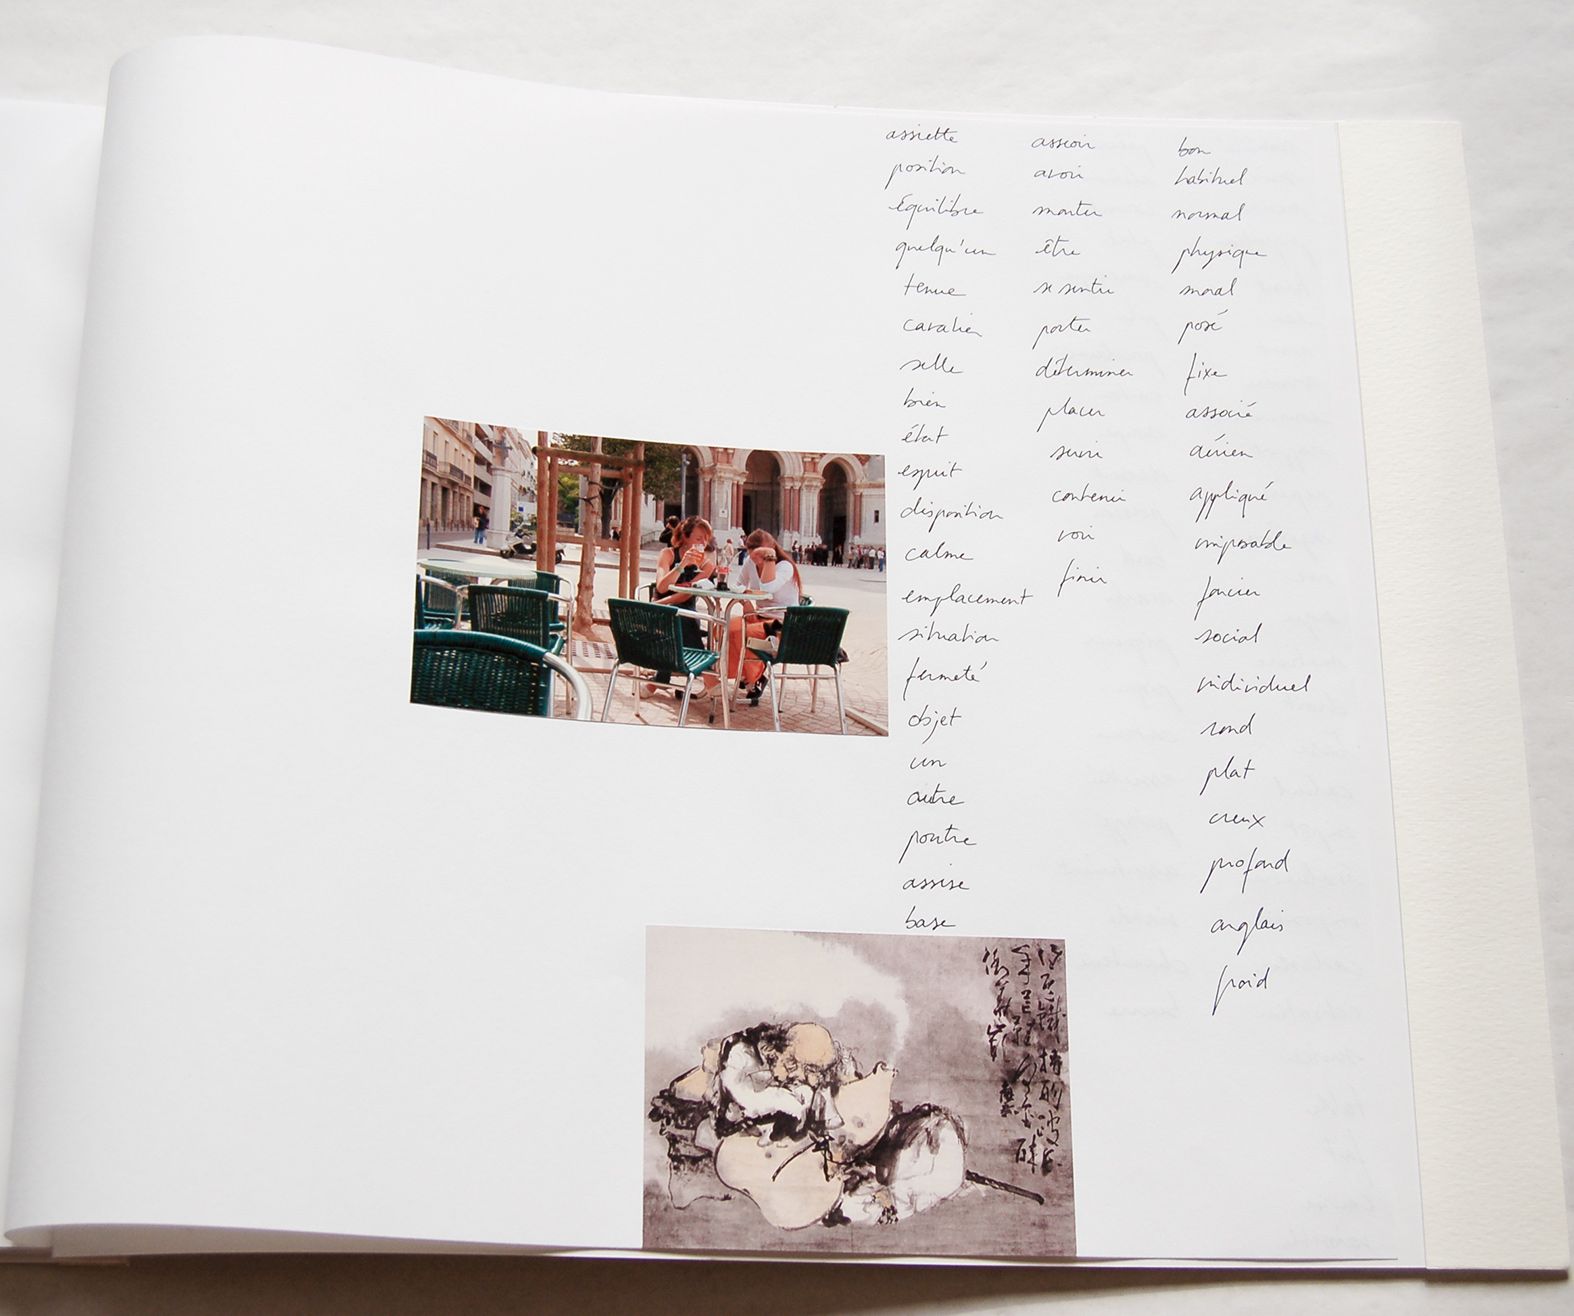 assiette
position
équilibre
quelqu'un
tenue
cavalier
selle
bien
état
esprit
disposition
calme
emplacement
situation
fermeté
objet
un
autre
poutre
assise
base
asseoir
avoir
monter
être
se sentir
porter
déterminer
placer
servir
contenir
voir
finir
bon
habituel
normal
physique
moral
posé
fixe
associé
aérien
appliqué
imposable
foncier
social
individuel
rond
plat
creux
profond
anglais
froid